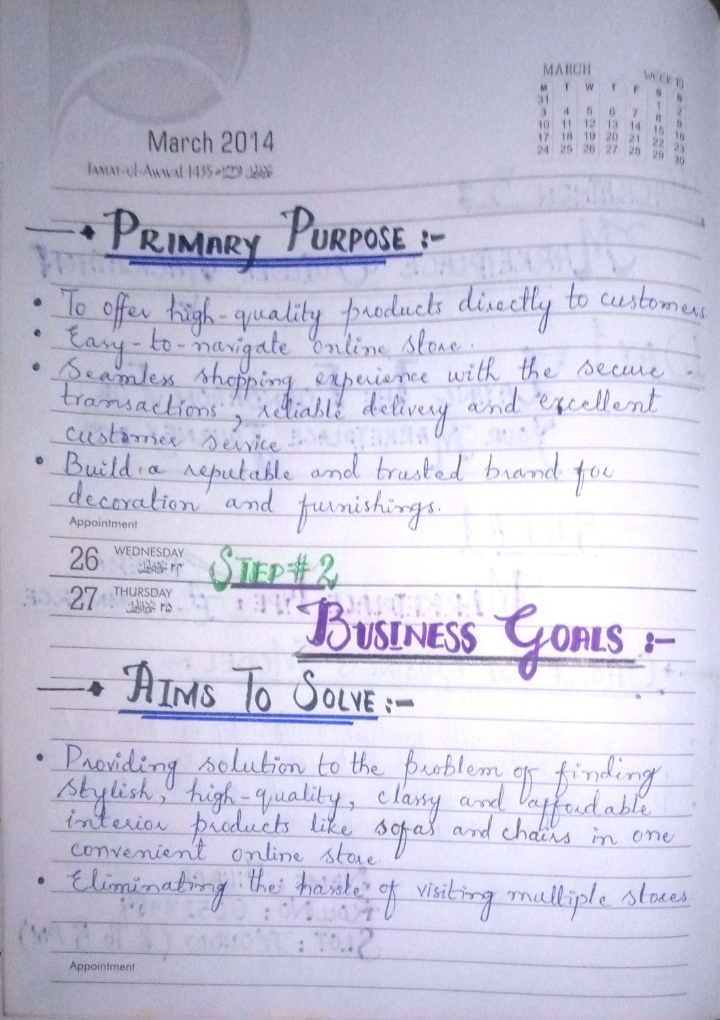 MARCH WEEK 13
M T W T F S S
31 1 2
3 4 5 6 7 8 9
10 11 12 13 14 15 16
17 18 19 20 21 22 23
24 25 26 27 28 29 30
March 2014
Jamat-ul-Awwal 1435
PRIMARY PURPOSE :-
• To offer high-quality products directly to customers.
• Easy-to-navigate online store.
• Seamless shopping experience with the secure
transactions, reliable delivery and excellent
customer service
• Build a reputable and trusted brand for
decoration and furnishings.
Appointment
26 WEDNESDAY STEP # 2
27 THURSDAY
BUSINESS GOALS :-
AIMS TO SOLVE :-
• Providing solution to the problem of finding
stylish, high-quality, classy and affordable
interior products like sofas and chairs in one
convenient online store.
• Eliminating the hassle of visiting multiple stores.
Appointment